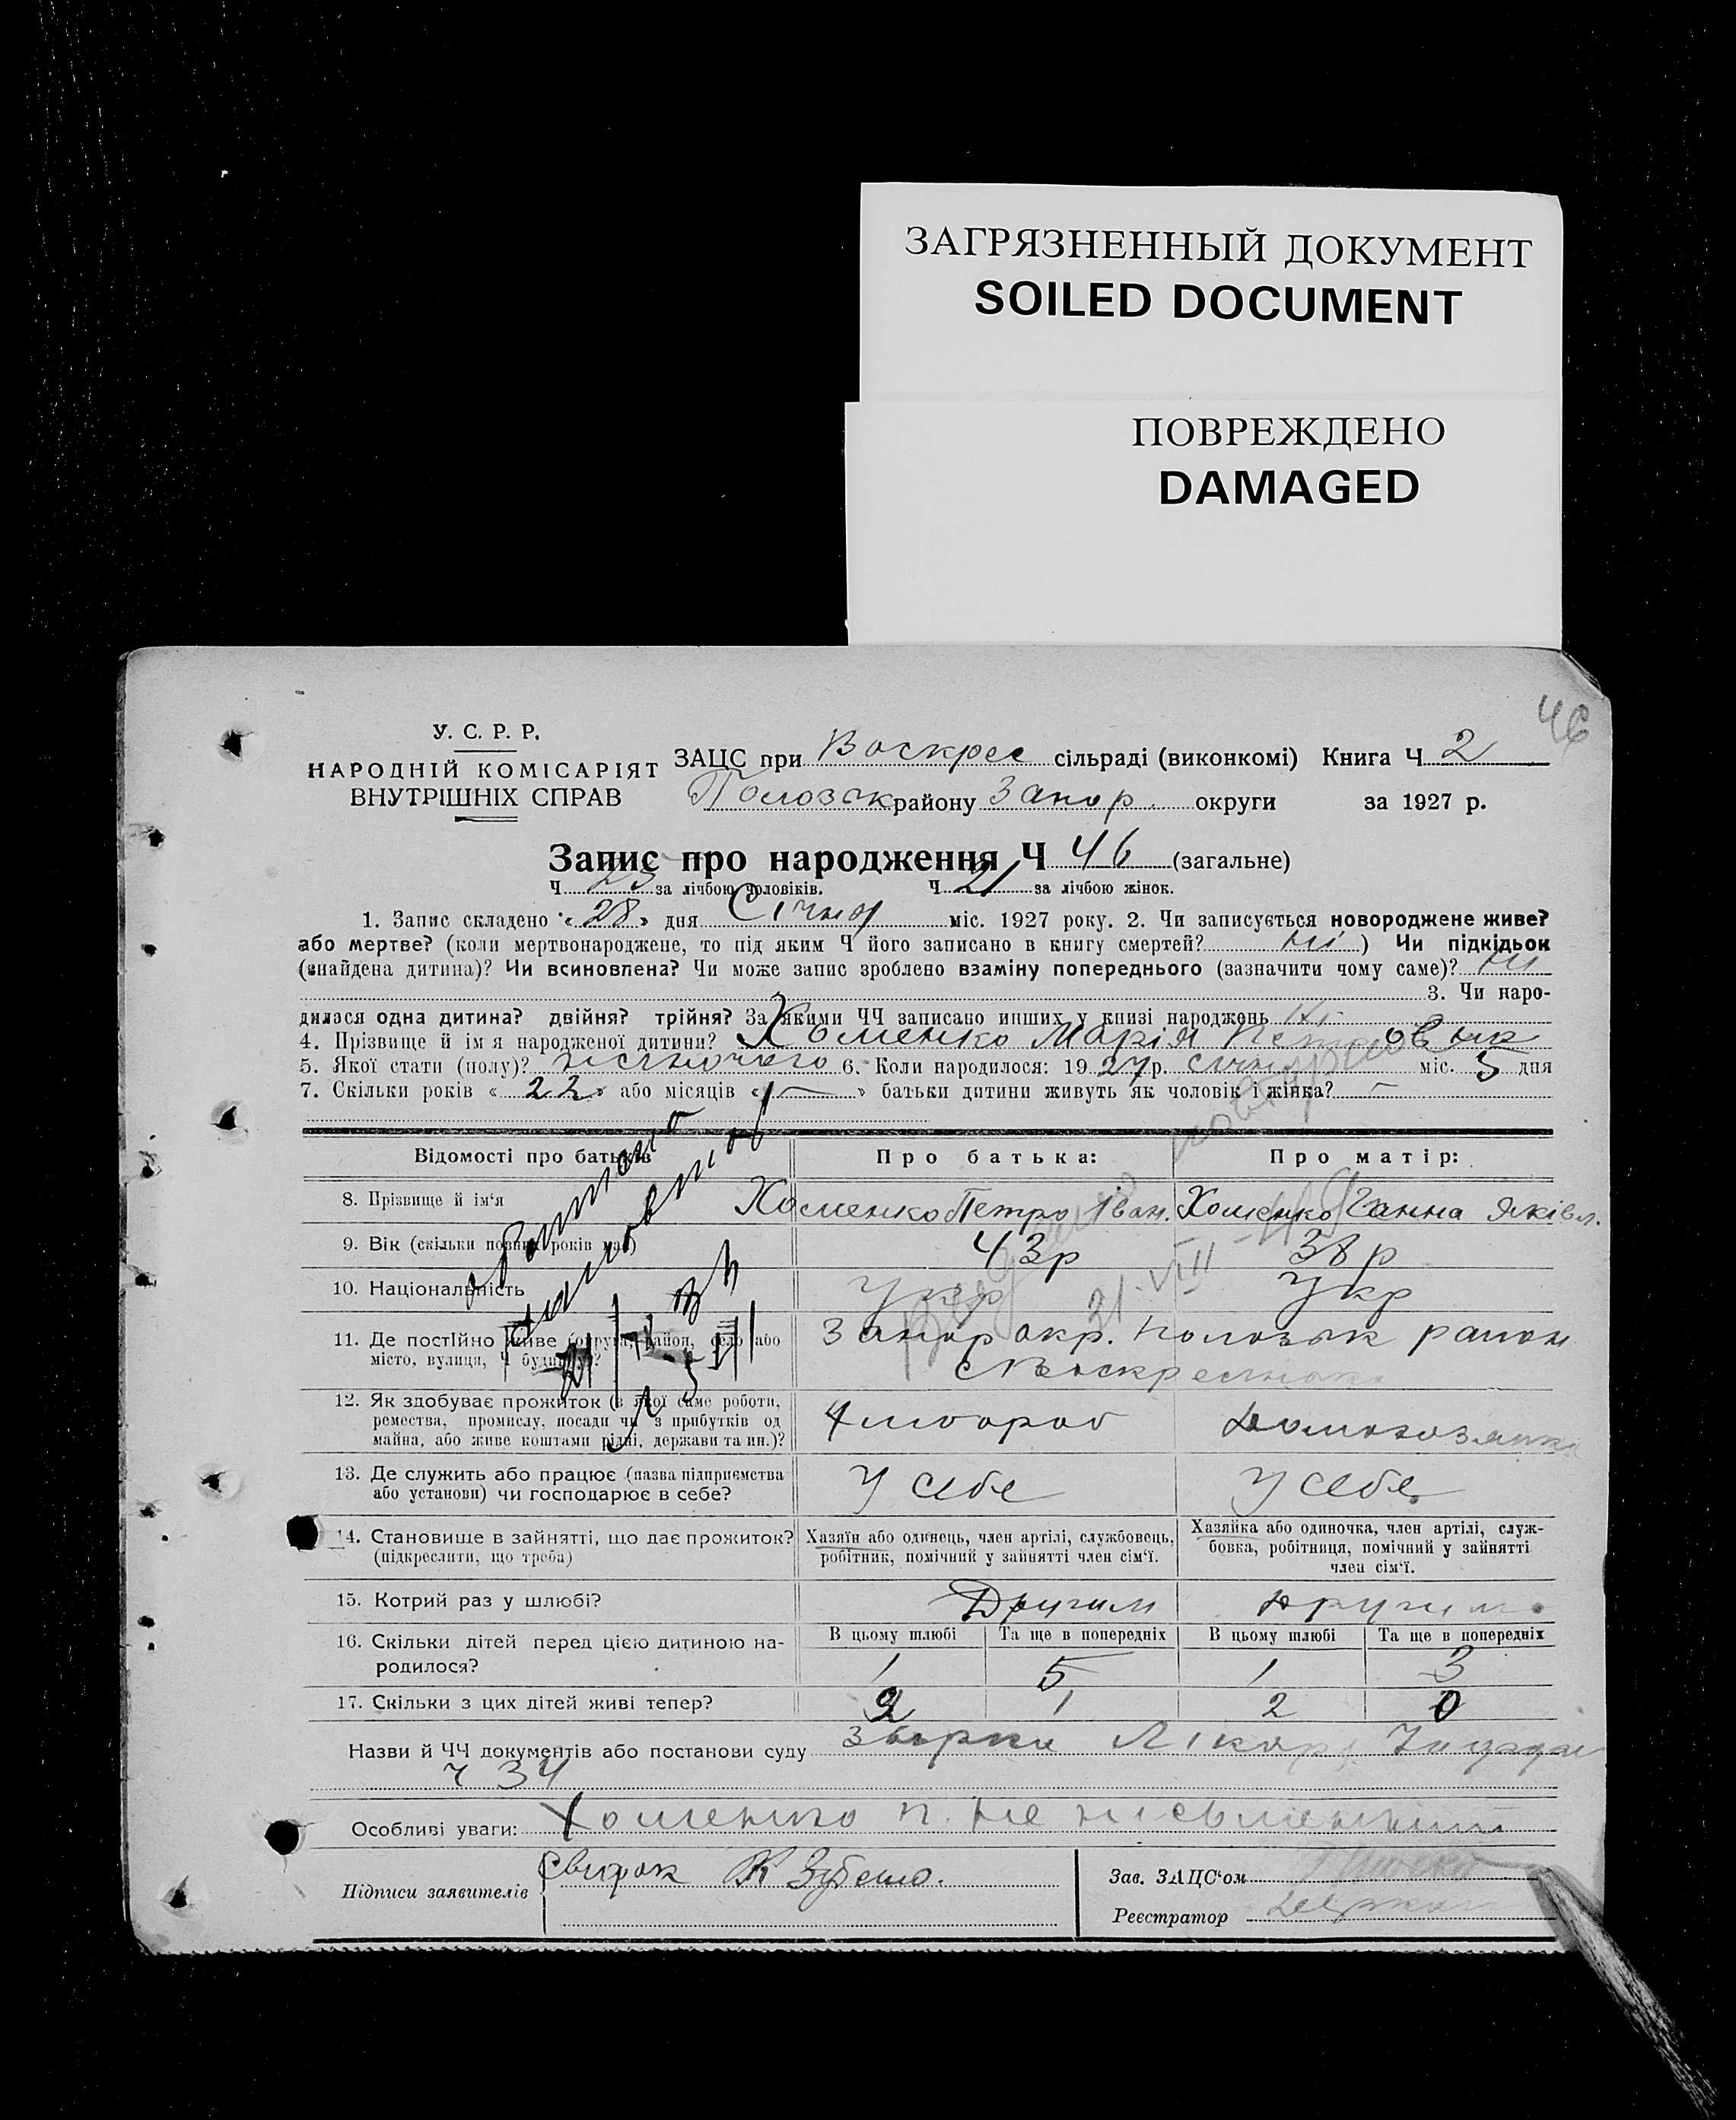 ЗАГРЯЗНЕННЫЙ ДОКУМЕНТ
SOILED DOCUMENT
ПОВРЕЖДЕНО
DAMAGED
46
У. С. Р. Р.
НАРОДНІЙ КОМІСАРІЯТ
ВНУТРІШНІХ СПРАВ
ЗАЦС при Воскрес сільраді (виконкомі) Книга Ч 2
Пологськ району Запор. округи за 1927 р.
Запис про народження Ч 46 (загальне)
Ч 25 за лічбою чоловіків. Ч 21 за лічбою жінок.
1. Запис складено «28» дня Січня міс. 1927 року. 2. Чи записується новороджене живе?
або мертве? (коли мертвонароджене, то під яким Ч його записано в книгу смертей? ні) Чи підкідьок
(знайдена дитина)? Чи всиновлена? Чи може запис зроблено взаміну попереднього (зазначити чому саме)? ні
3. Чи наро-
дилася одна дитина? двійня? трійня? За якими ЧЧ записано инших у книзі народжень
4. Прізвище й ім'я народженої дитини? Хоменко Марія
5. Якої стати (полу)? жіночого 6. Коли народилося: 1927 р. січня міс. 5 дня
7. Скільки років «22» або місяців «—» батьки дитини живуть як чоловік і жінка? —
повторно
Відомості про батьків Про батька: Про матір:
8. Прізвище й ім'я Хоменко Петро Іван. Хоменко Ганна Яківл.
9. Вік (скільки повних років має) 43р 38р
10. Національність Укр Укр
31-VIII
11. Де постійно живе (округа, район, село або Запор окр. Пологськ район
місто, вулиця, Ч будинку)?
12. Як здобуває прожиток (з якої саме роботи, Хлібороб Домохозяйка
ремества, промислу, посади чи з прибутків од
майна, або живе коштами рідні, держави та ин.)?
13. Де служить або працює (назва підприємства У себе У себе
або установи) чи господарює в себе?
14. Становище в зайнятті, що дає прожиток? Хазяїн або одинець, член артілі, службовець, Хазяйка або одиночка, член артілі, служ-
(підкреслити, що треба) робітник, помічний у зайнятті член сім'ї. бовка, робітниця, помічний у зайнятті
член сім'ї.
15. Котрий раз у шлюбі? Другим другим
16. Скільки дітей перед цією дитиною на- В цьому шлюбі Та ще в попередніх В цьому шлюбі Та ще в попередніх
родилося? 1 5 1 3
17. Скільки з цих дітей живі тепер? 2 1 2 0
Назви й ЧЧ документів або постанови суду
ч 34
Особливі уваги: Хоменко п. не письменний
Підписи заявителів Свидок
Зав. ЗАЦС'ом
Реєстратор